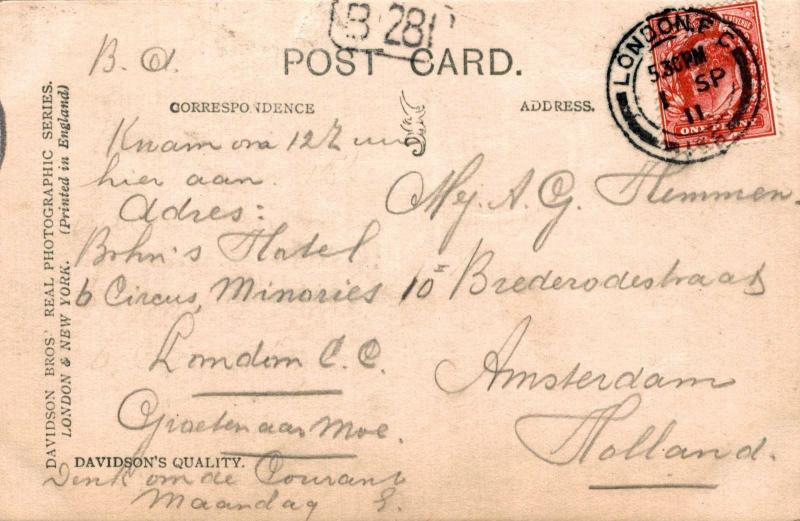 B 281
POST CARD.
CORRESPONDENCE
ADDRESS.
LONDON. E.C
5.30PM
1 SP
11
ONE PENNY
DAVIDSON BROS' REAL PHOTOGRAPHIC SERIES.
LONDON & NEW YORK. (Printed in England)
B. A.
Knam om 12½ uur
hier aan.
Adres:
Bohn's Hotel
6 Circus, Minories
London E.C.
Groeten aan Moe.
DAVIDSON'S QUALITY.
Denk om de Courant
Maandag E.
Mej. A. G. Hemmen-
10 Brederodestraat
Amsterdam
Holland.